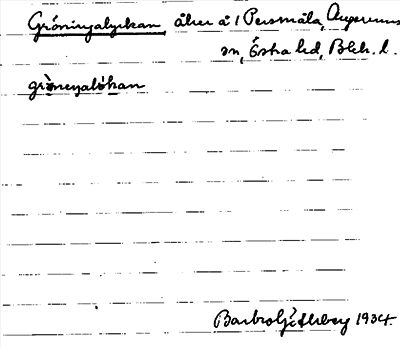 Gröningalyckan, åker å 1 Persmåla, Augerums
sn, Östra hd, Blek. l.
grö̀neŋalókan
1934.